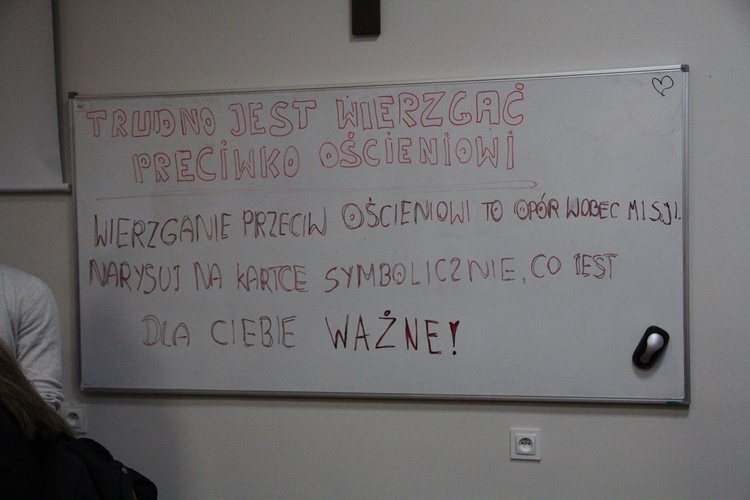 TRUDNO JEST WIERZGAĆ
PRECIWKO OŚCIENIOWI
WIERZGANIE PRZECIW OŚCIENIOWI TO OPÓR WOBEC MISJI.
NARYSUJ NA KARTCE SYMBOLICZNIE, CO JEST
DLA CIEBIE WAŻNE!